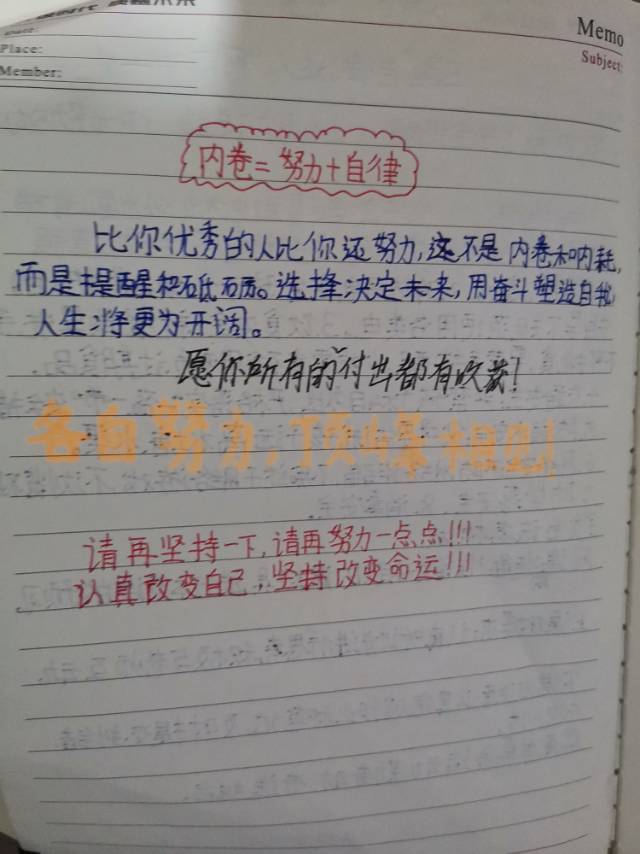 Memo
Subject:
Place:
Member:
内卷=努力+自律
比你优秀的人比你还努力,这不是内卷和内耗,
而是提醒和砥砺。选择决定未来,用奋斗塑造自我,
人生将更为开阔。
愿你所有的付出都有收获!
各自努力,顶峰相见!
请再坚持一下,请再努力一点点!!!
认真改变自己,坚持改变命运!!!